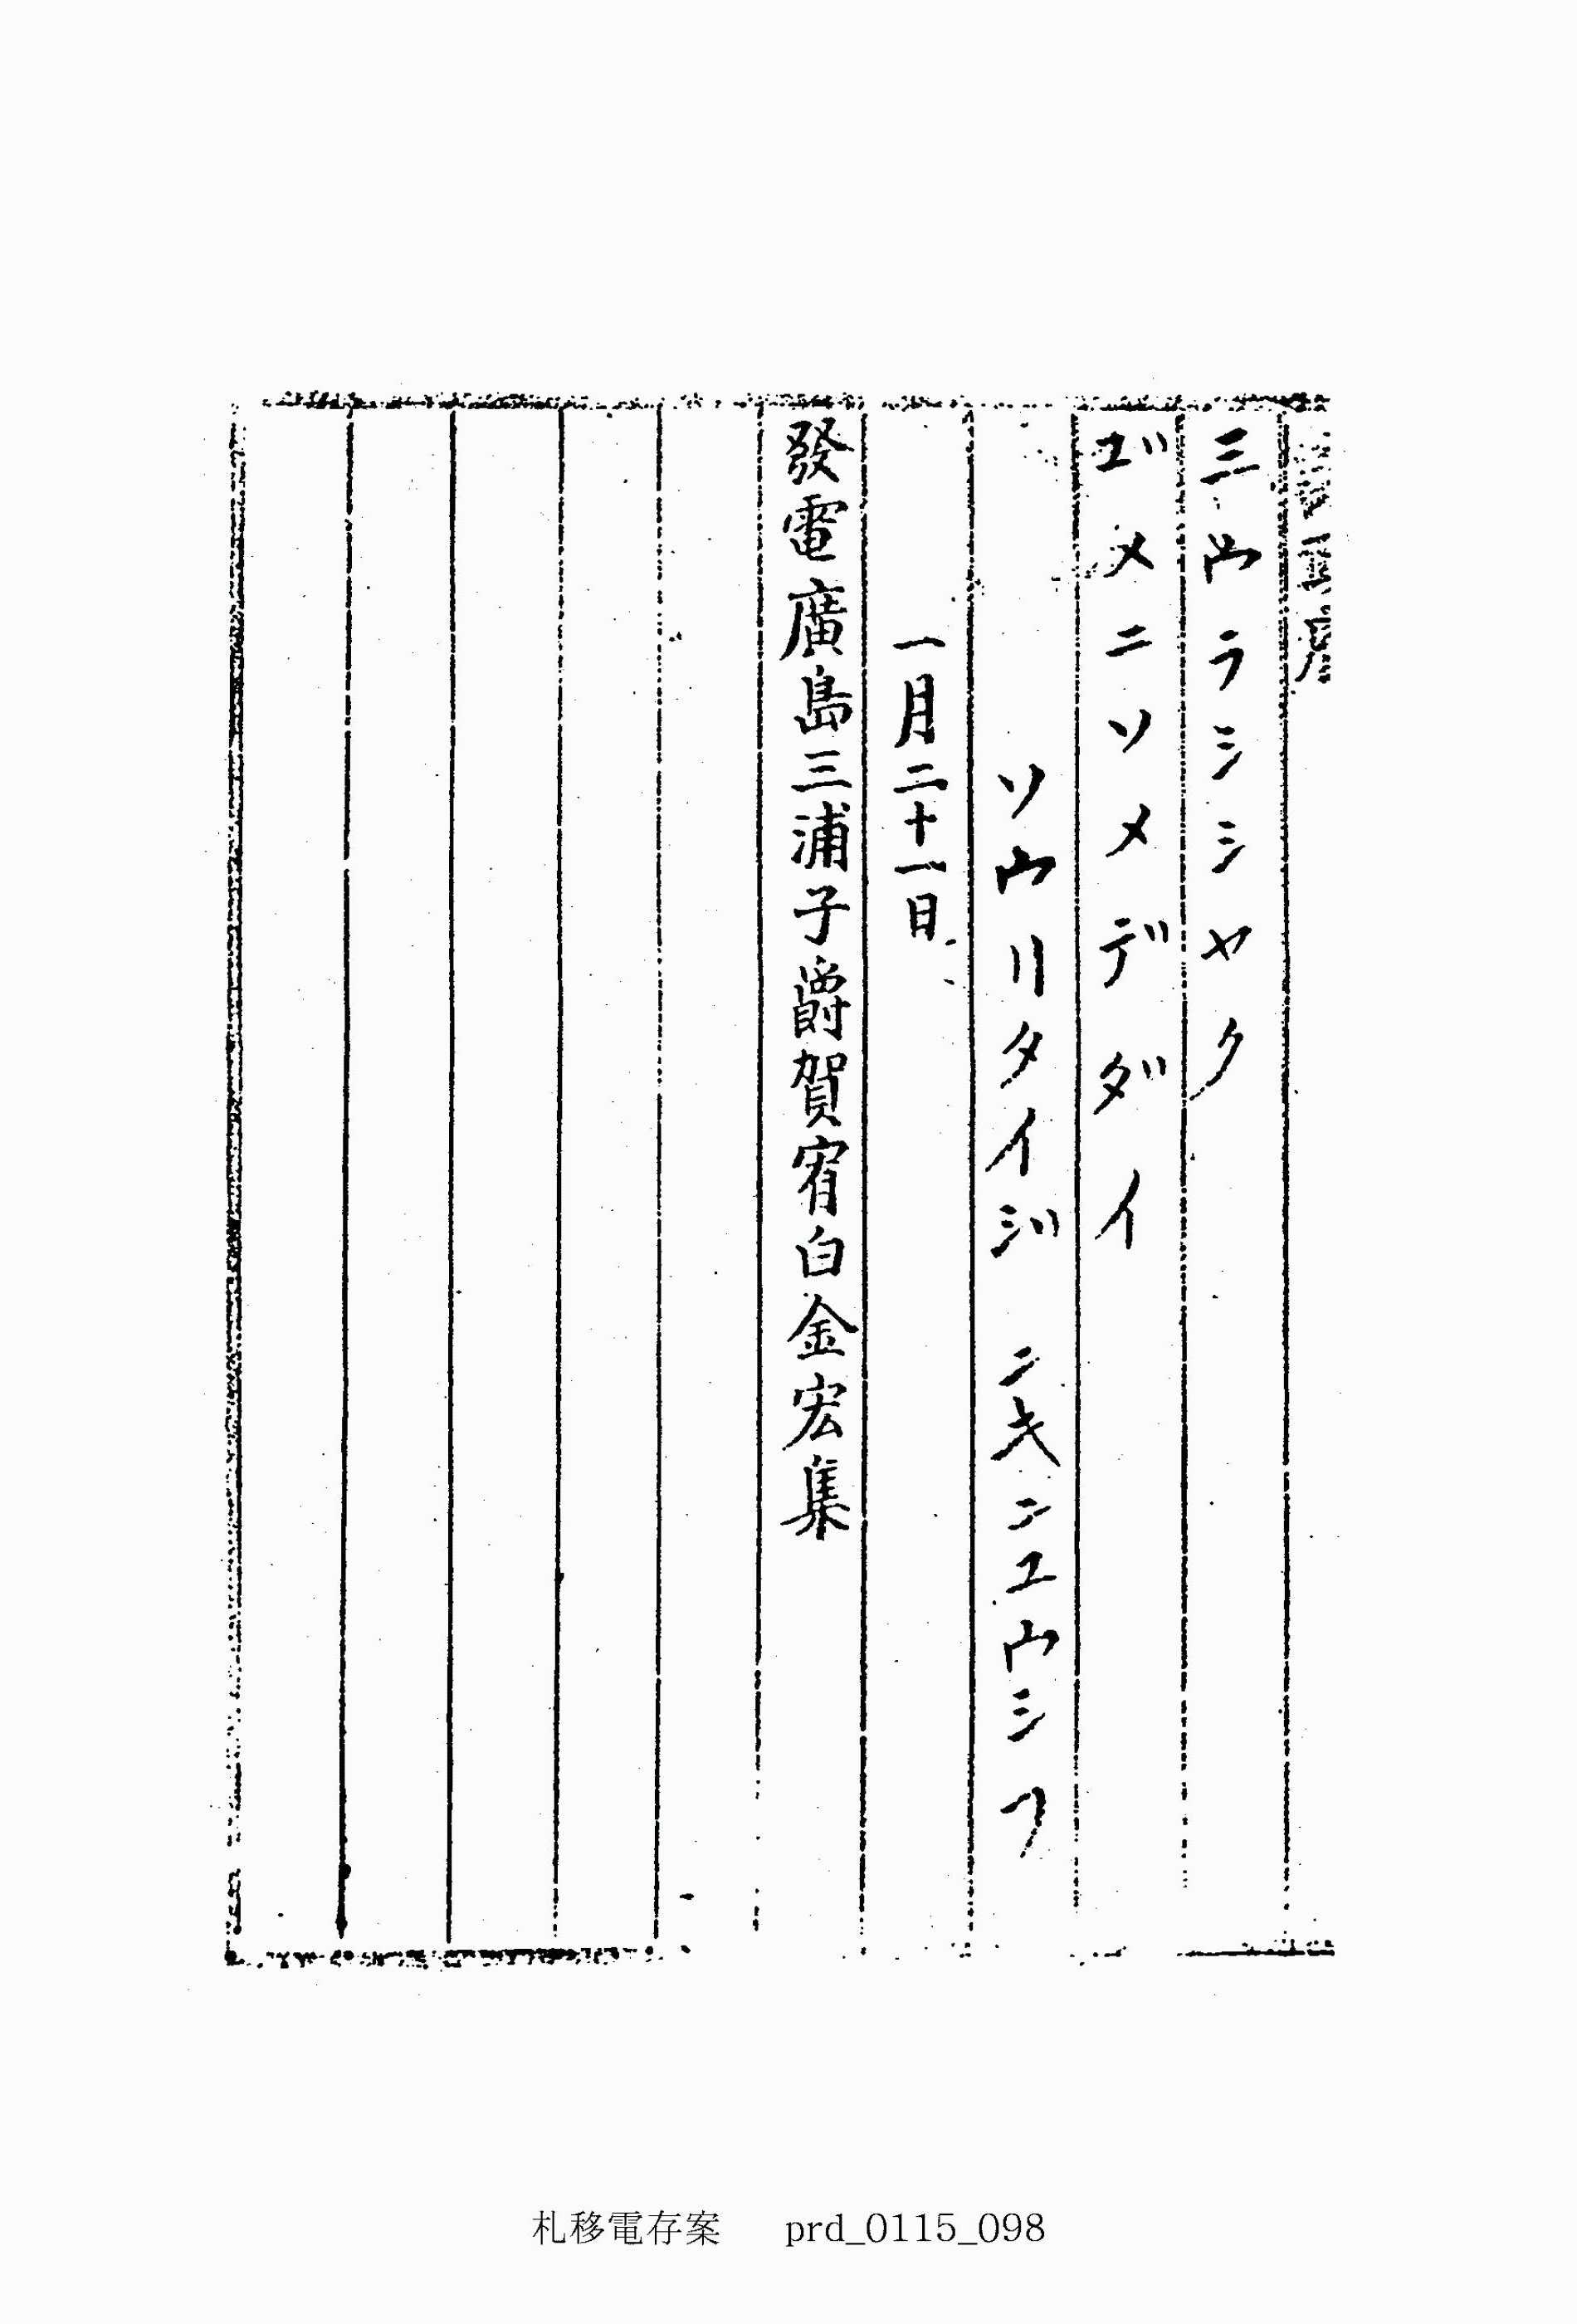 三ウラシシヤク
ユ゛メニソメデダイ
ソウリタイジ ンキンユウシフ
一月二十一日
發電廣島三浦子爵賀宥白金宏集
札移電存案 prd_0115_098